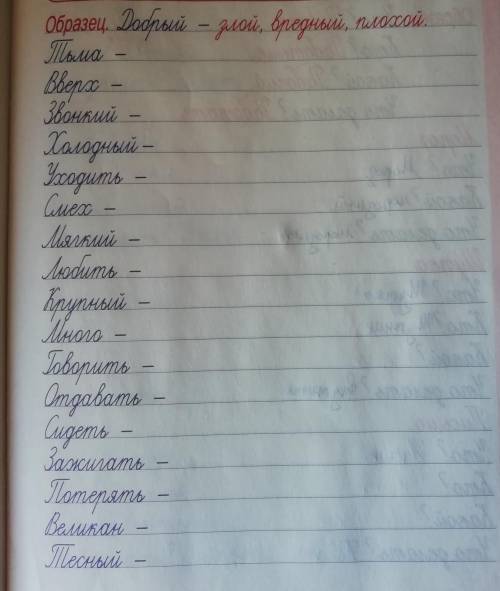 Образец. Добрый – злой, вредный, плохой.
Тьма –
Вверх –
Звонкий –
Холодный –
Уходить –
Смех –
Мягкий –
Любить –
Крупный –
Много –
Говорить –
Отдавать –
Сидеть –
Зажигать –
Потерять –
Великан –
Тесный –